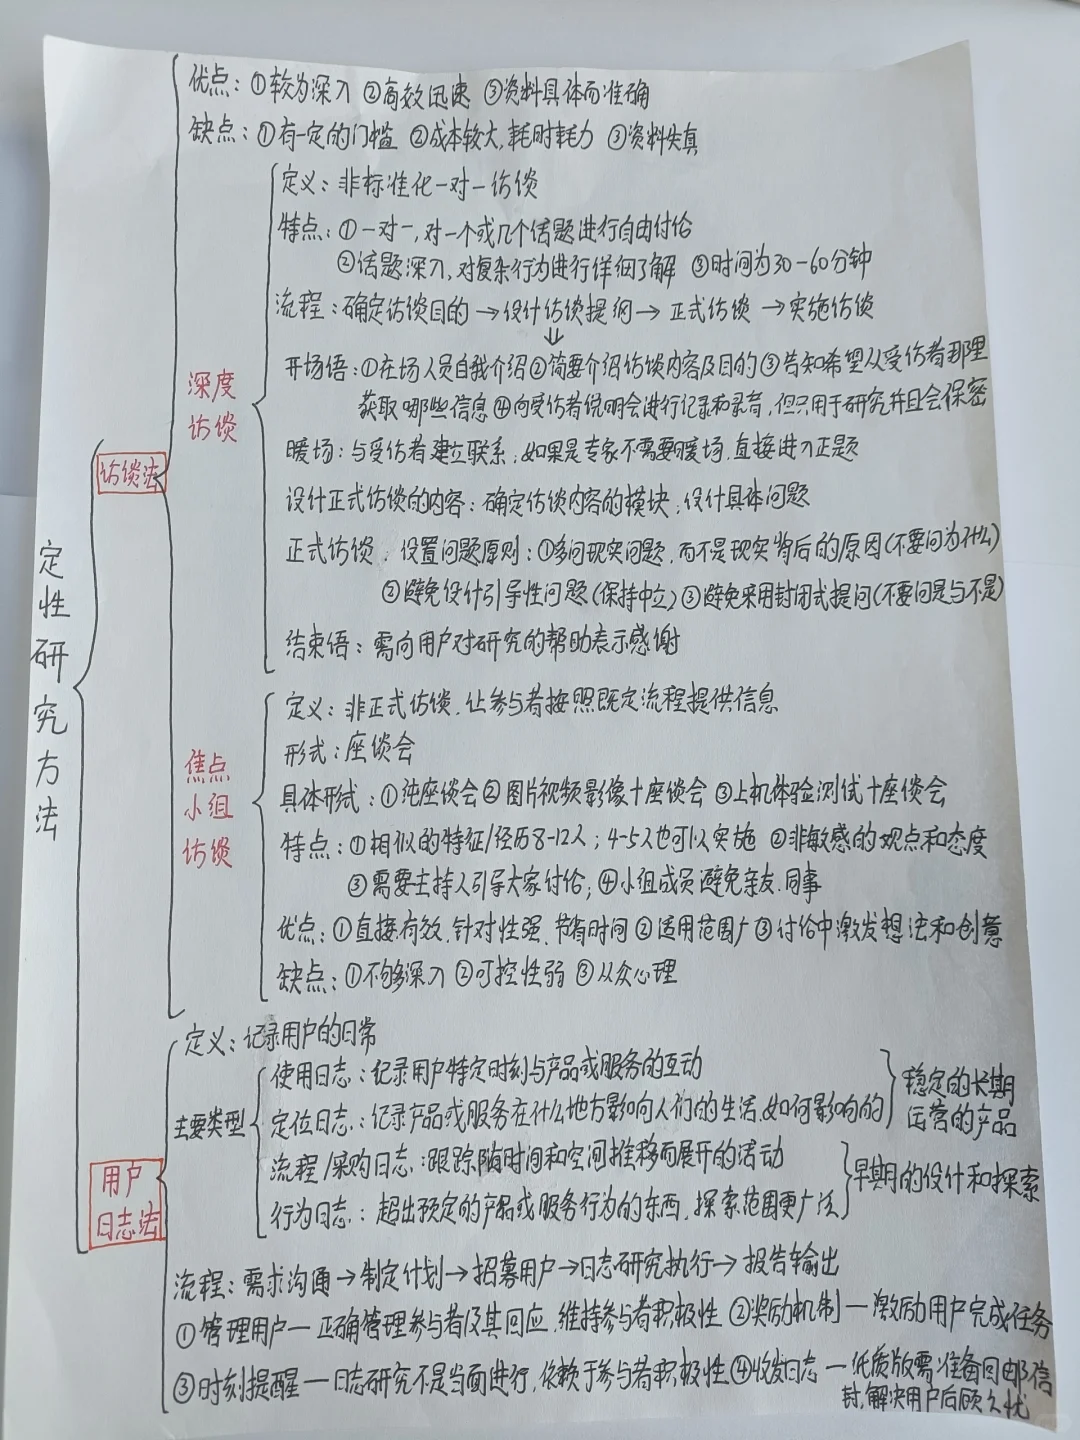 定性研究方法
访谈法
优点：①较为深入 ②高效迅速 ③资料具体而准确
缺点：①有一定的门槛 ②成本较大，耗时耗力 ③资料失真
深度
访谈
定义：非标准化一对一访谈
特点：①一对一，对一个或几个话题进行自由讨论
②话题深入，对复杂行为进行详细了解 ③时间为30-60分钟
流程：确定访谈目的→设计访谈提纲→正式访谈→实施访谈
⇓
开场语：①在场人员自我介绍②简要介绍访谈内容及目的③告知希望从受访者那里
获取哪些信息④向受访者说明会进行记录和录音，但只用于研究并且会保密
暖场：与受访者建立联系；如果是专家不需要暖场，直接进入正题
设计正式访谈的内容：确定访谈内容的模块；设计具体问题
正式访谈，设置问题原则：①多问现实问题，而不是现实背后的原因(不要问为什么)
②避免设计引导性问题(保持中立)③避免采用封闭式提问(不要问是与不是)
结束语：需向用户对研究的帮助表示感谢
焦点
小组
访谈
定义：非正式访谈，让参与者按照既定流程提供信息
形式：座谈会
具体形式：①纯座谈会②图片视频影像+座谈会③上机体验测试+座谈会
特点：①相似的特征/经历8-12人；4-5人也可以实施 ②非敏感的观点和态度
③需要主持人引导大家讨论；④小组成员避免亲友、同事
优点：①直接有效、针对性强、节省时间②适用范围广③讨论中激发想法和创意
缺点：①不够深入②可控性弱③从众心理
用户
日志法
定义：记录用户的日常
主要类型
使用日志：记录用户特定时刻与产品或服务的互动
定位日志：记录产品或服务在什么地方影响人们的生活，如何影响的
稳定的长期
运营的产品
流程/采购日志：跟踪随时间和空间推移而展开的活动
行为日志：超出预定的产品或服务行为的东西，探索范围更广泛
早期的设计和探索
流程：需求沟通→制定计划→招募用户→日志研究执行→报告输出
①管理用户—正确管理参与者及其回应，维持参与者积极性②奖励机制—激励用户完成任务
③时刻提醒—日志研究不是当面进行，依赖于参与者积极性④收发日志—纸质版需准备回邮信
封，解决用户后顾之忧